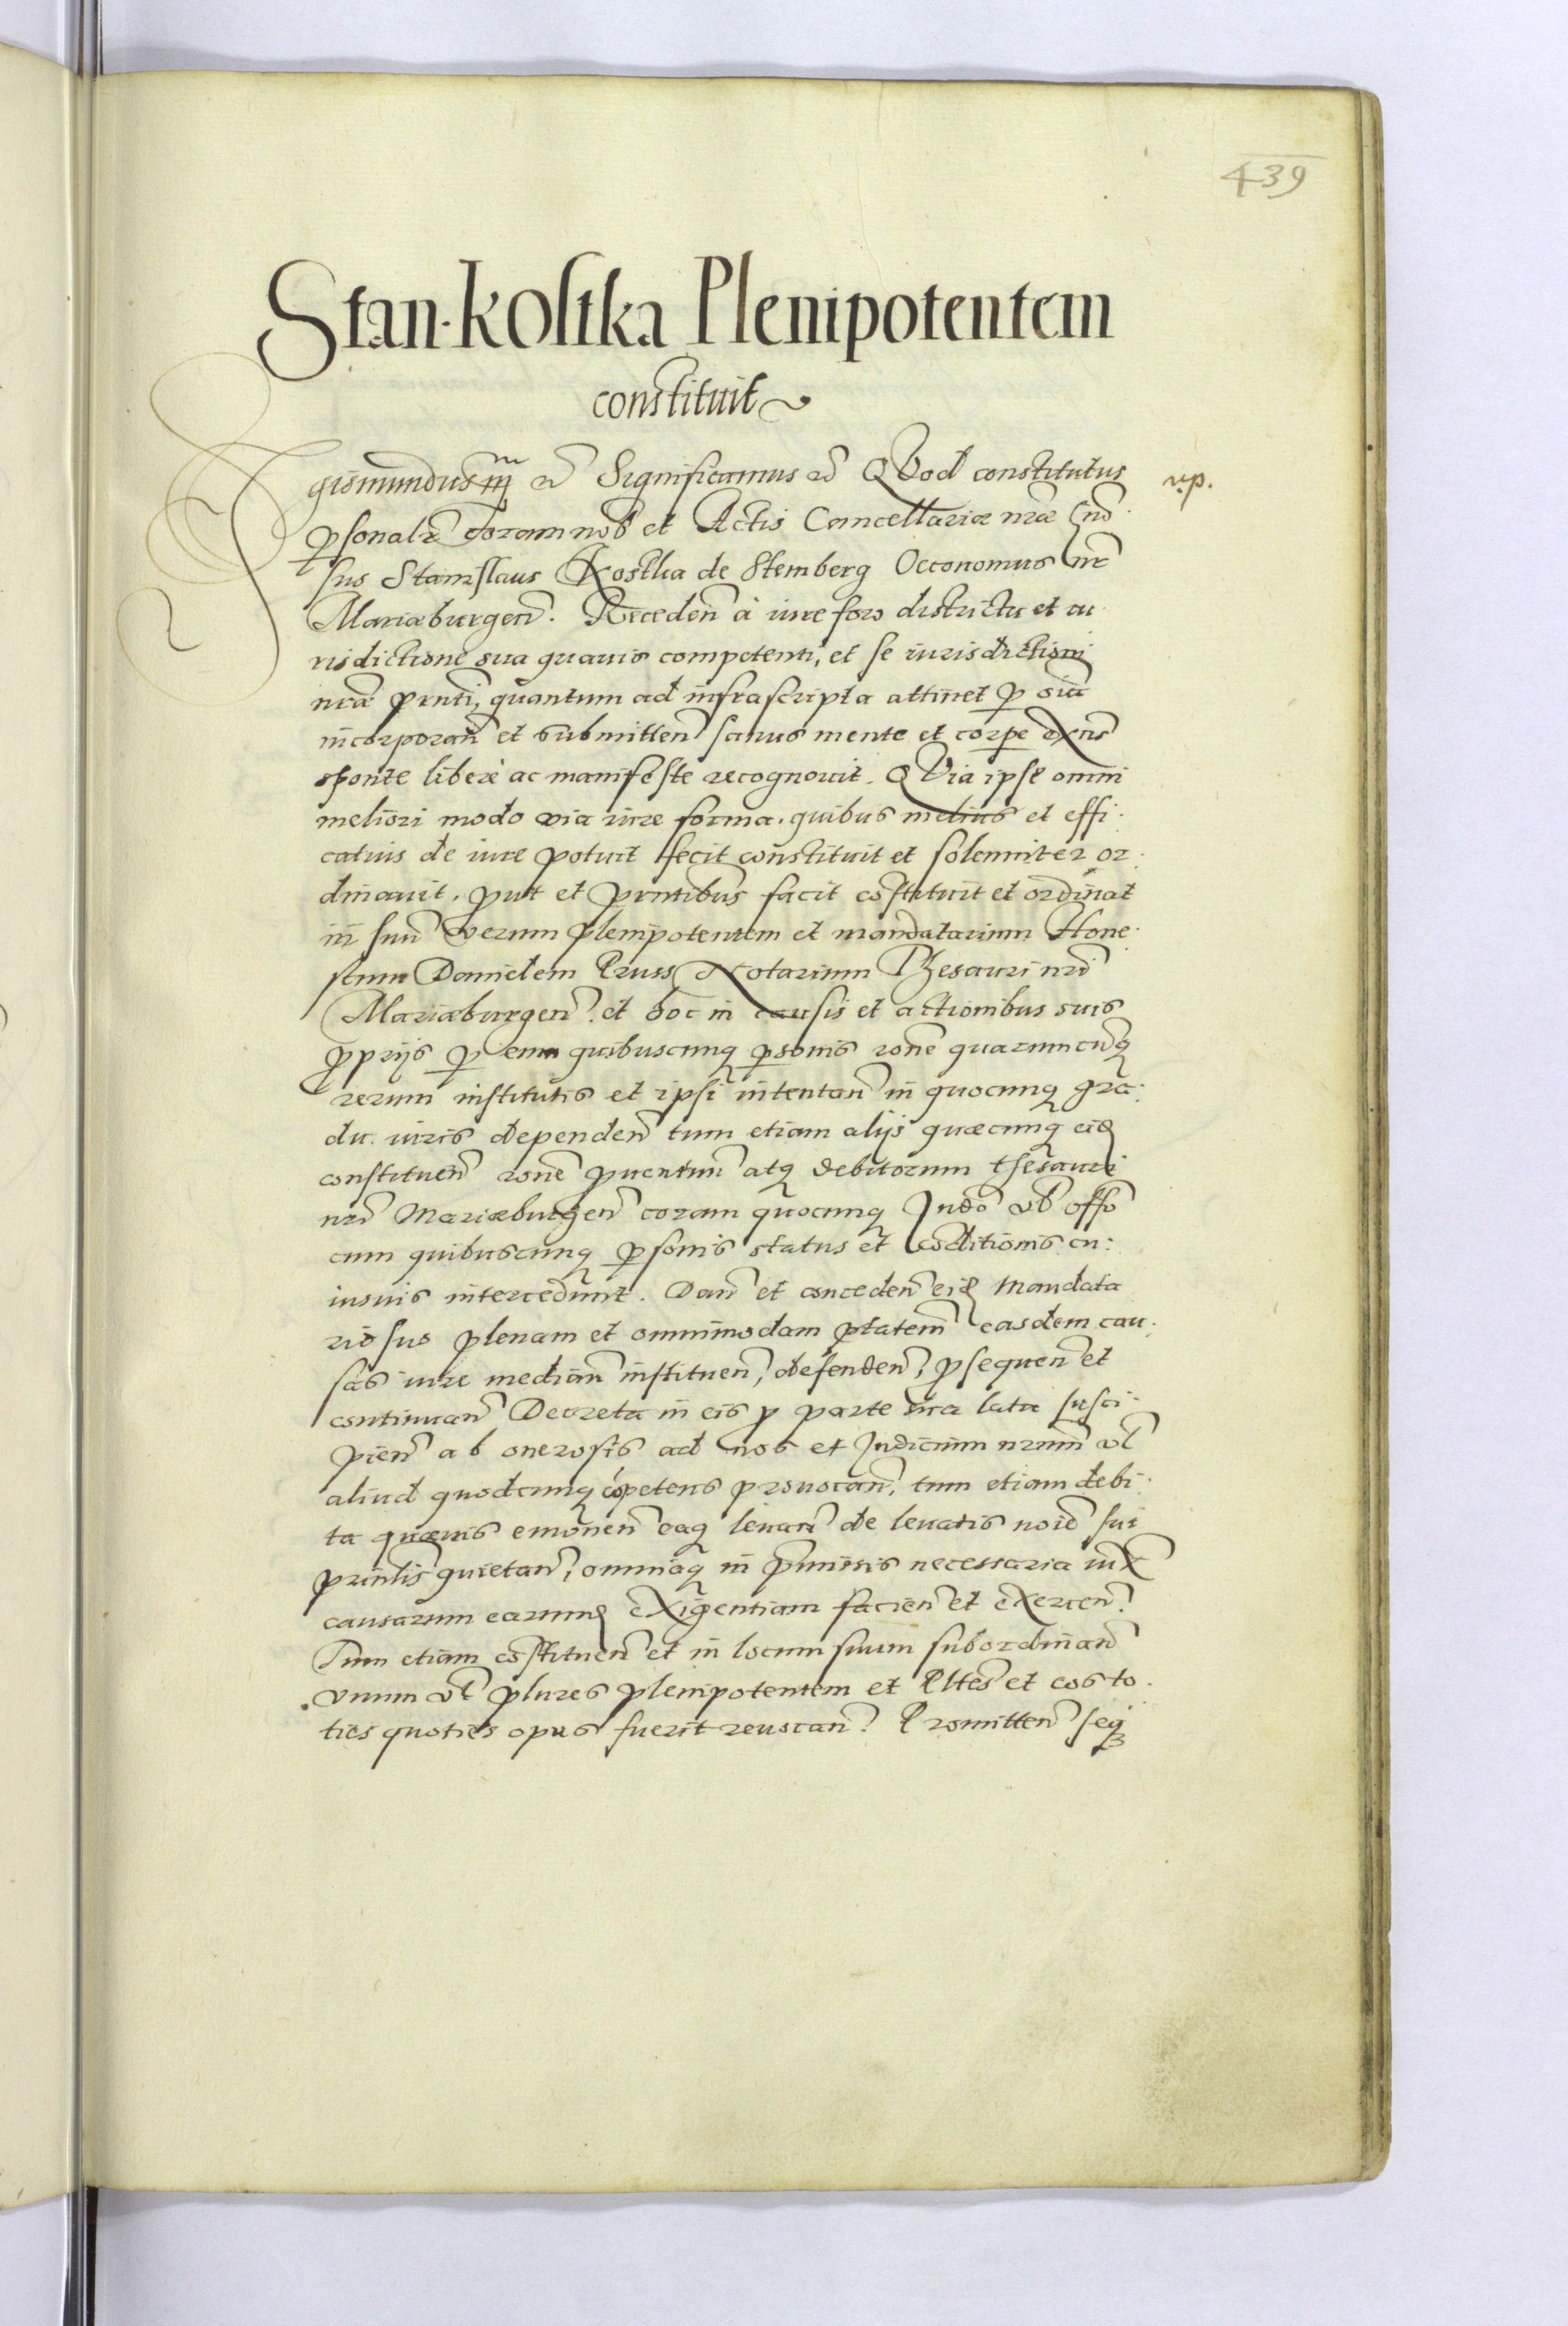 439
Stan. Kostka Plenipotentem
constituit
Sigismundus III etc Significamus etc Quod constitutus
psonalr Coram nob et Actis Cancellariæ nræ Gno
sus Stanislaus Kostka de Stemberg Oeconomus nr
Mariæburgen. Receden à iure foro districtu et iu
risdictione sua quauis competenti, et se iurisdictioni
nræ pnti, quantum ad infrascripta attinet p oia
incorporan et submitten sanus mente et corpe exns
sponte liberè ac manifeste recognouit. Quia ipse omni
meliori modo via iure forma. quibus melius et effi.
catius de iure potuit fecit constituit et solenniter or.
dinauit. put et pntibus facit costituit et ordinat
in suu verum plenipotentem et mandatarium Hone.
stum Danielem Pruss Notarium Thesauri nri
Mariæburgen. et hoc in causis et actionibus suis
pprijs p eum quibuscunq psonis rone quarumcunq
rerum institutis et ipsi intentan in quocunq gra.
du iuris dependen tum etiam alijs quæcunq eid
constituen rone puentuu atq debitorum thesauri
nri Mariæburgen coram quocunq Iudo vl offo
cum quibuscunq psonis status et coditionis cu:
iusuis intercedunt. Dan et conceden eid Mandata
rio suo plenam et omnimodam ptatem easdem cau.
sas iure median instituen, defenden, psequen et
continuan Decreta in eis p parte sua lata susci.
pien ab onerosis ad nos et Iudicium nrum vl
aliud quodcunq copetens prouocan, tum etiam debi.
ta quæuis emonen eaq leuan de leuatis noie sui
prinlis quietan, omniaq in pmissis necessaria iux
causarum earund exigentiam facien et exercen.
Tum etiam costituen et in locum suum subordinan
vnum vl plures plenipotentem et Pltes et eos to.
ties quoties opus fuerit reuocan. Promitten seq